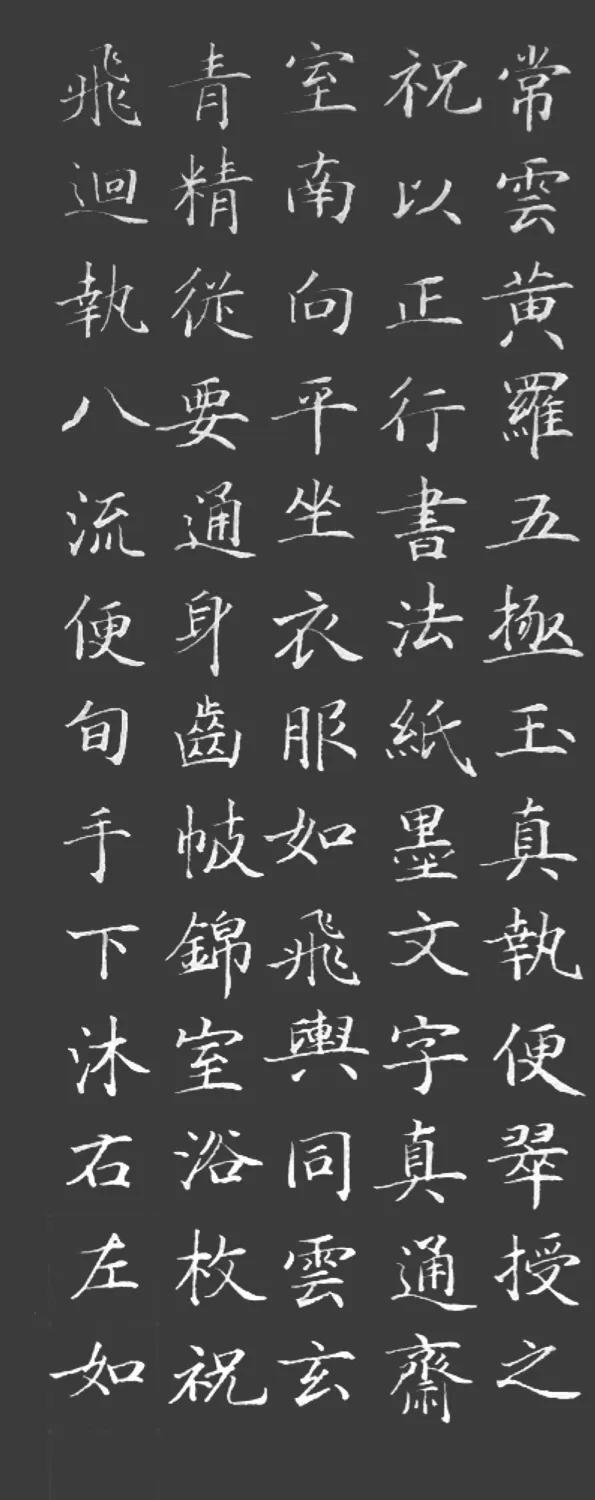 常雲黄羅五極玉真執便翠授之
祝以正行書法紙墨文字真通齋
室南向平坐衣服如飛輿同雲玄
青精從要通身齒帔錦室浴枚祝
飛迴執八流便旬手下沐右左如